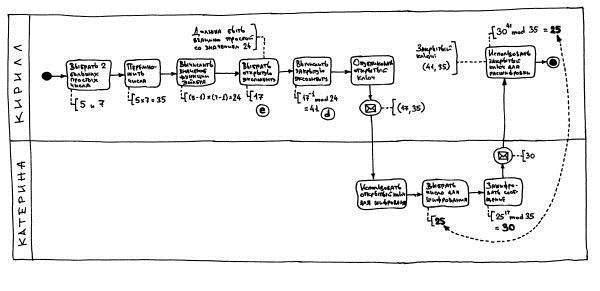 КИРИЛЛ
ВЫБРАТЬ 2
БОЛЬШИХ
ПРОСТЫХ
ЧИСЛА
5 и 7
ПЕРЕМНО-
ЖИТЬ
ЧИСЛА
5×7=35
ВЫЧИСЛИТЬ
ЗНАЧЕНИЕ
ФУНКЦИИ
ЭЙЛЕРА
(5-1)×(7-1)=24
ДОЛЖНА БЫТЬ
ВЗАИМНО ПРОСТОЙ
СО ЗНАЧЕНИЕМ 24
ВЫБРАТЬ
ОТКРЫТУЮ
ЭКСПОНЕНТУ
17
e
ВЫЧИСЛИТЬ
ЗАКРЫТУЮ
ЭКСПОНЕНТУ
17⁻¹ mod 24
= 41
d
ОПУБЛИКОВАТЬ
ОТКРЫТЫЙ
КЛЮЧ
(17,35)
ЗАКРЫТЫЙ
КЛЮЧ
(41, 35)
30⁴¹ mod 35 = 25
ИСПОЛЬЗОВАТЬ
ЗАКРЫТЫЙ
КЛЮЧ ДЛЯ
РАСШИФРОВКИ
КАТЕРИНА
ИСПОЛЬЗОВАТЬ
ОТКРЫТЫЙ КЛЮЧ
ДЛЯ ШИФРОВАНИЯ
ВЫБРАТЬ
ЧИСЛО ДЛЯ
ШИФРОВАНИЯ
25
ЗАШИФРО-
ВАТЬ СООБ-
ЩЕНИЕ
25¹⁷ mod 35
= 30
30